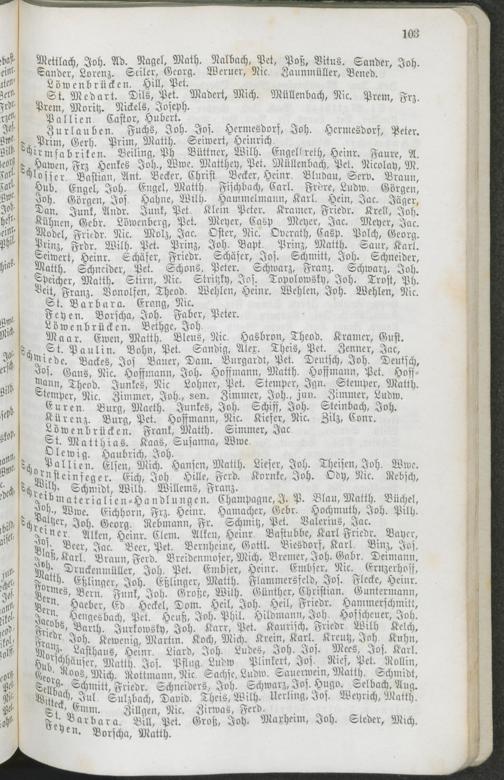 103
Mettlach, Joh. Ad. Nagel, Math. Nalbach, Pet, Poß, Vitus. Sander, Joh.
Sander, Lorenz. Seiler, Georg. Werner, Nic. Zaunmüller, Bened.
Löwenbrücken. Hill, Pet.
St. Medart. Dils, Pet. Madert, Mich. Müllenbach, Nic. Prem, Frz.
Prem, Moritz. Nickels, Joseph.
Pallien Castor, Hubert.
Zurlauben. Fuchs, Joh. Jos. Hermesdorf, Joh. Hermesdorf, Peter.
Prim, Gerh. Prim, Matth. Seiwert, Heinrich
Schirmfabriken. Beiling, Ph Büttner, Wilh. Engelbreth, Heinr. Faure, A.
Hawen, Frz Henkes Joh., Wwe. Matthey, Pet. Müllenbach, Pet. Nicolay, M.
Schlosser. Bastian, Ant. Becker, Christ Becker, Heinr. Bludau, Serv. Braun,
Hub. Engel, Joh. Engel, Matth Fischbach, Carl. Frère, Ludw. Görgen,
Joh. Görgen, Jos. Hahne, Wilh. Hammelmann, Karl. Hein, Jac. Jäger,
Dan. Junk, Andr. Junk, Pet. Klein Peter. Kramer, Friedr. Krell, Joh.
Kühnen, Gebr. Löwenberg, Pet. Meyer, Casp Meyer, Jac. Meyer, Jac.
Model, Friedr. Nic. Molz, Jac. Oster, Nic. Overath, Casp. Polch, Georg.
Prinz, Frdr. Wilh. Pet. Prinz, Joh. Bapt. Prinz, Matth. Saur, Karl.
Seiwert, Heinr. Schäfer, Friedr. Schäfer, Jos. Schmitt, Joh. Schneider,
Matth. Schneider, Pet. Schons, Peter. Schwarz, Franz. Schwarz, Joh.
Speicher, Matth. Stirn, Nic. Stritzky, Jos. Topolowsky, Joh. Trost, Ph.
Veit, Franz. Vonolfen, Theod. Wehlen, Heinr. Wehlen, Joh. Wehlen, Nic.
St. Barbara. Grang, Nic.
Feyen. Borscha, Joh. Faber, Peter.
Löwenbrücken. Bethge, Joh.
Maar. Ewen, Matth. Bleus, Nic. Hasbron, Theod. Kramer, Gust.
St. Paulin. Bohn, Pet. Sandig, Alex. Theis, Pet. Zenner, Jac,
Schmiede. Backes, Jos Bauer, Dam. Burgardt, Pet. Deutsch, Joh. Deutsch,
Jos. Gans, Nic. Hoffmann, Joh. Hoffmann, Matth. Hoffmann, Pet. Hoff-
mann, Theod. Junkes, Nic Lohner, Pet. Stemper, Ign. Stemper, Matth.
Stemper, Nic. Zimmer, Joh., sen. Zimmer, Joh., jun. Zimmer, Ludw.
Euren. Burg, Matth. Junkes, Joh. Schiff, Joh. Steinbach, Joh.
Kürenz. Burg, Pet. Hoffmann, Nic. Kiefer, Nic. Bilz, Conr.
Löwenbrücken. Frank, Matth. Simmer, Jac
St. Matthias. Kaas, Susanna, Wwe.
Olewig. Haubrich, Joh.
Pallien. Elsen, Mich. Hansen, Matth. Lieser, Joh. Theisen, Joh. Wwe.
Schornsteinfeger. Eich, Joh Hille, Ferd. Kornke, Joh. Ody, Nic. Rebsch,
Wilh. Schmidt, Wilh. Willems, Franz.
Schreibmaterialien-Handlungen. Champagne, J. P. Blau, Matth. Büchel,
Joh., Wwe. Eichhorn, Frz. Heinr. Hamacher, Gebr. Hochmuth, Joh. Pilh.
Paltzer, Joh. Georg. Rebmann, Fr. Schmitz, Pet. Valerius, Jac.
Schreiner. Alken, Heinr. Clem. Alken, Heinr. Bastubbe, Karl Friedr. Bayer,
Jos. Beer, Jac. Beer, Pet. Bernheine, Gottl. Biesdorf, Karl. Binz, Jos.
Blaß, Karl. Braun, Ferd. Breidenmoser, Mich. Bremer, Joh. Gabr. Demann,
Joh. Druckenmüller, Joh. Pet. Embser, Heinr. Embser, Nic. Ernzerhoff,
Matth. Etzlinger, Joh. Etzlinger, Matth. Flammersfeld, Jos. Flecke, Heinr.
Formes, Bern. Funk, Joh. Große, Wilh. Günther, Christian. Guntermann,
Bern. Haeber, Ed Heckel, Dom. Heil, Joh. Heil, Friedr. Hammerschmitt,
Bern. Hengesbach, Pet. Heuß, Joh. Phil. Hildmann, Joh. Hofscheuer, Joh.
Jacobs, Barth. Jurkowsky, Joh. Karr, Pet. Kaurisch, Frieder. Wilh Kelch,
Friedr. Joh. Kewenig, Martin. Koch, Mich. Krein, Karl. Kreutz, Joh. Kuhn,
Franz. Lasthaus, Heinr. Liard, Joh. Ludes, Joh. Jos. Mees, Jos. Karl.
Morschhäuser, Matth. Jos. Pflug, Ludw Plinkert, Jos. Rief, Pet. Rollin,
Hub. Roos, Mich. Rottmann, Nic. Sachse, Ludw. Sauerwein, Matth. Schmidt,
Georg. Schmitt, Friedr. Schneiders, Joh. Schwarz, Jos. Hugo. Selbach, Aug.
Sellbach, Jul. Sulzbach, David. Theis, Wilh. Uerling, Jos. Weyrich, Matth.
Witteck, Emm. Zillgen, Nic. Zirwas, Ferd.
St. Barbara. Bill, Pet. Groß, Joh. Maxheim, Joh. Steder, Mich.
Feyen. Borscha, Matth.